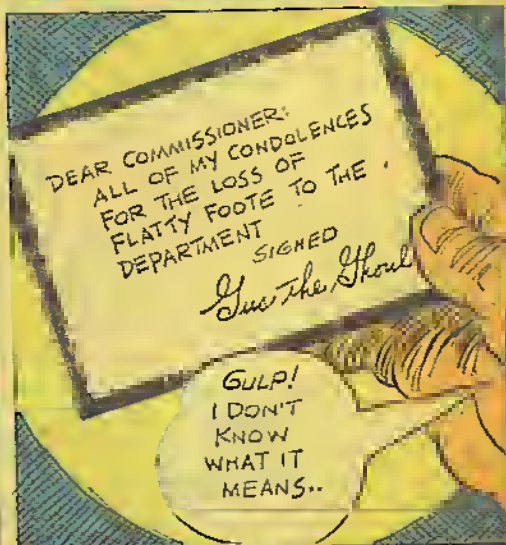 DEAR COMMISSIONER:
ALL OF MY CONDOLENCES
FOR THE LOSS OF
FLATTY FOOTE TO THE
DEPARTMENT
SIGNED
Gus the Ghoul
GULP!
I DON'T
KNOW
WHAT IT
MEANS..